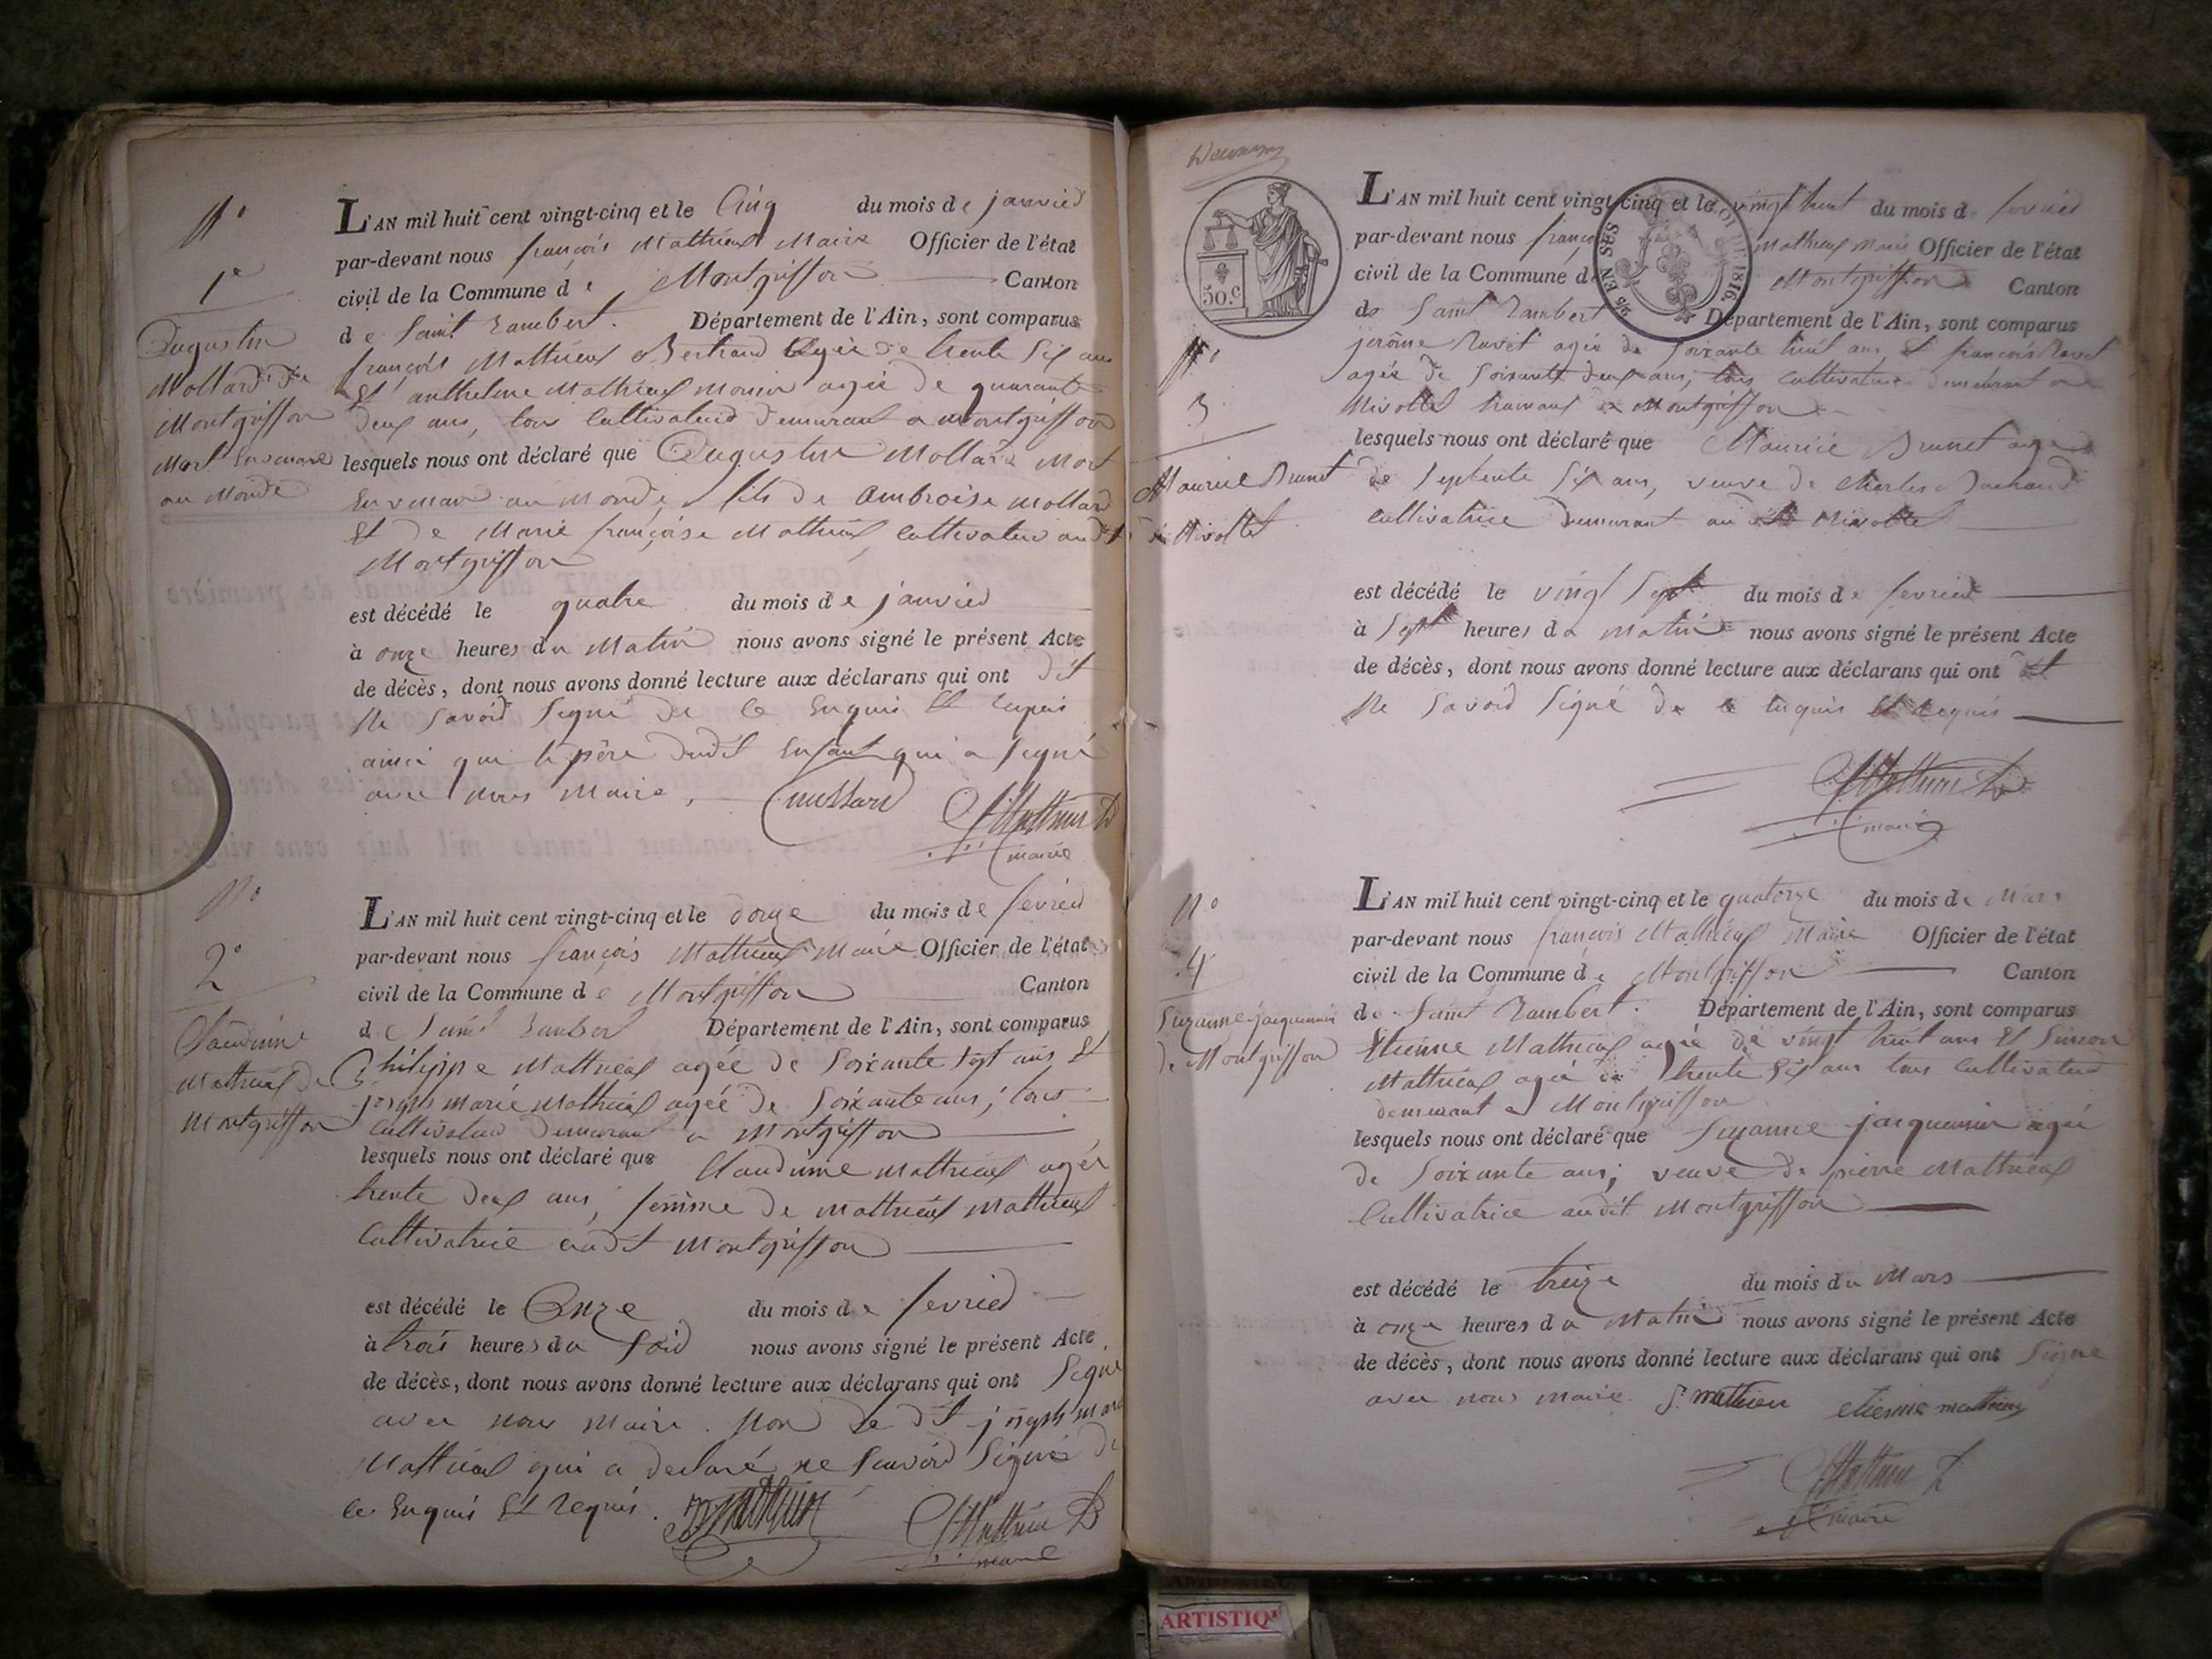 N°
1e
Augustin
Mollard de
Montgriffon
Mort en venant
au Monde
L'AN mil huit cent vingt-cinq et le Cinq du mois de janvier
par-devant nous françois Mathieux Maire Officier de l'état
civil de la Commune de Montgriffon Canton
de Saint Rambert. Département de l'Ain, sont comparus
françois Mathieux Bertrand agée de trente six ans
Et anthelme Mathieux Monin agée de quarante
deux ans, tous Cultivateurs demeurant a Montgriffon
lesquels nous ont déclaré que Augustin Mollard Mort
En venant au Monde, fils de Ambroise Mollard
Et de Marie françoise Mathieux, Cultivateur audit
Montgriffon
est décédé le quatre du mois de janvier
à onze heures du Matin nous avons signé le présent Acte
de décès, dont nous avons donné lecture aux déclarans qui ont dit
Ne Savoir Signé de Ce Enquis Et requis
ainsi que le père dudit Enfant qui a Signé
avec nous Maire.
maire
N°
2°
Claudinne
Mathieux de
Montgriffon
L'AN mil huit cent vingt-cinq et le douze du mois de fevrier
par-devant nous françois Mathieux Maire Officier de l'état
civil de la Commune de Montgriffon Canton
de Saint Rambert Département de l'Ain, sont comparus
Philippe Mathieux agée de Soixante Sept ans, Et
joseph marie Mathieux agée de Soixante ans; tous
Cultivateurs demeurant a Montgriffon
lesquels nous ont déclaré que Claudinne Mathieux agée
trente deux ans, femme de Mathieux Mathieux
Cultivatrice audit Montgriffon
est décédé le Onze du mois de fevrier
à trois heures du Soir nous avons signé le présent Acte
de décès, dont nous avons donné lecture aux déclarans qui ont Signé
avec nous Maire. Non le dit joseph marie
Mathieux qui a declaré ne Savoir Signer de
ce Enquis Et requis.
maire
50.c
EN SUS
DE 1816.
N°
3
Maurice Brunet
de Nivollet
L'AN mil huit cent vingt-cinq et le vingt huit du mois de fevrier
par-devant nous françois Mathieux Maire Officier de l'état
civil de la Commune de Montgriffon Canton
de Saint Rambert Département de l'Ain, sont comparus
jerôme Ravet agée de Soixante huit ans, Et françois Ravet
agée de Soixante deux ans; tous Cultivateurs demeurant a
Nivollet hameaux de Montgriffon
lesquels nous ont déclaré que Maurice Brunet agée
de Septente Six ans, veuve de Charles
Cultivatrice demeurant au dit Nivollet
est décédé le vingt Sept du mois de fevrier
à Sept heures du matin nous avons signé le présent Acte
de décès, dont nous avons donné lecture aux déclarans qui ont dit
Ne Savoir Signé de ce Enquis Et Requis
maire
N°
4
Suzanne jacquemin
de Montgriffon
L'AN mil huit cent vingt-cinq et le quatorze du mois de Mars
par-devant nous françois Mathieux Maire Officier de l'état
civil de la Commune de Montgriffon Canton
de Saint Rambert. Département de l'Ain, sont comparus
Etienne Mathieux agée de vingt huit ans Et Simon
Mathieux agée de trente Six ans tous Cultivateurs
demeurant a Montgriffon
lesquels nous ont déclaré que Suzanne jacquemin agée
de Soixante ans; veuve de pierre Mathieux
Cultivatrice audit Montgriffon
est décédé le treize du mois du Mars
à onze heures du Matin nous avons signé le présent Acte
de décès, dont nous avons donné lecture aux déclarans qui ont Signé
avec nous maire. S. mathieu etienne mathieux
maire
ARTISTIQ